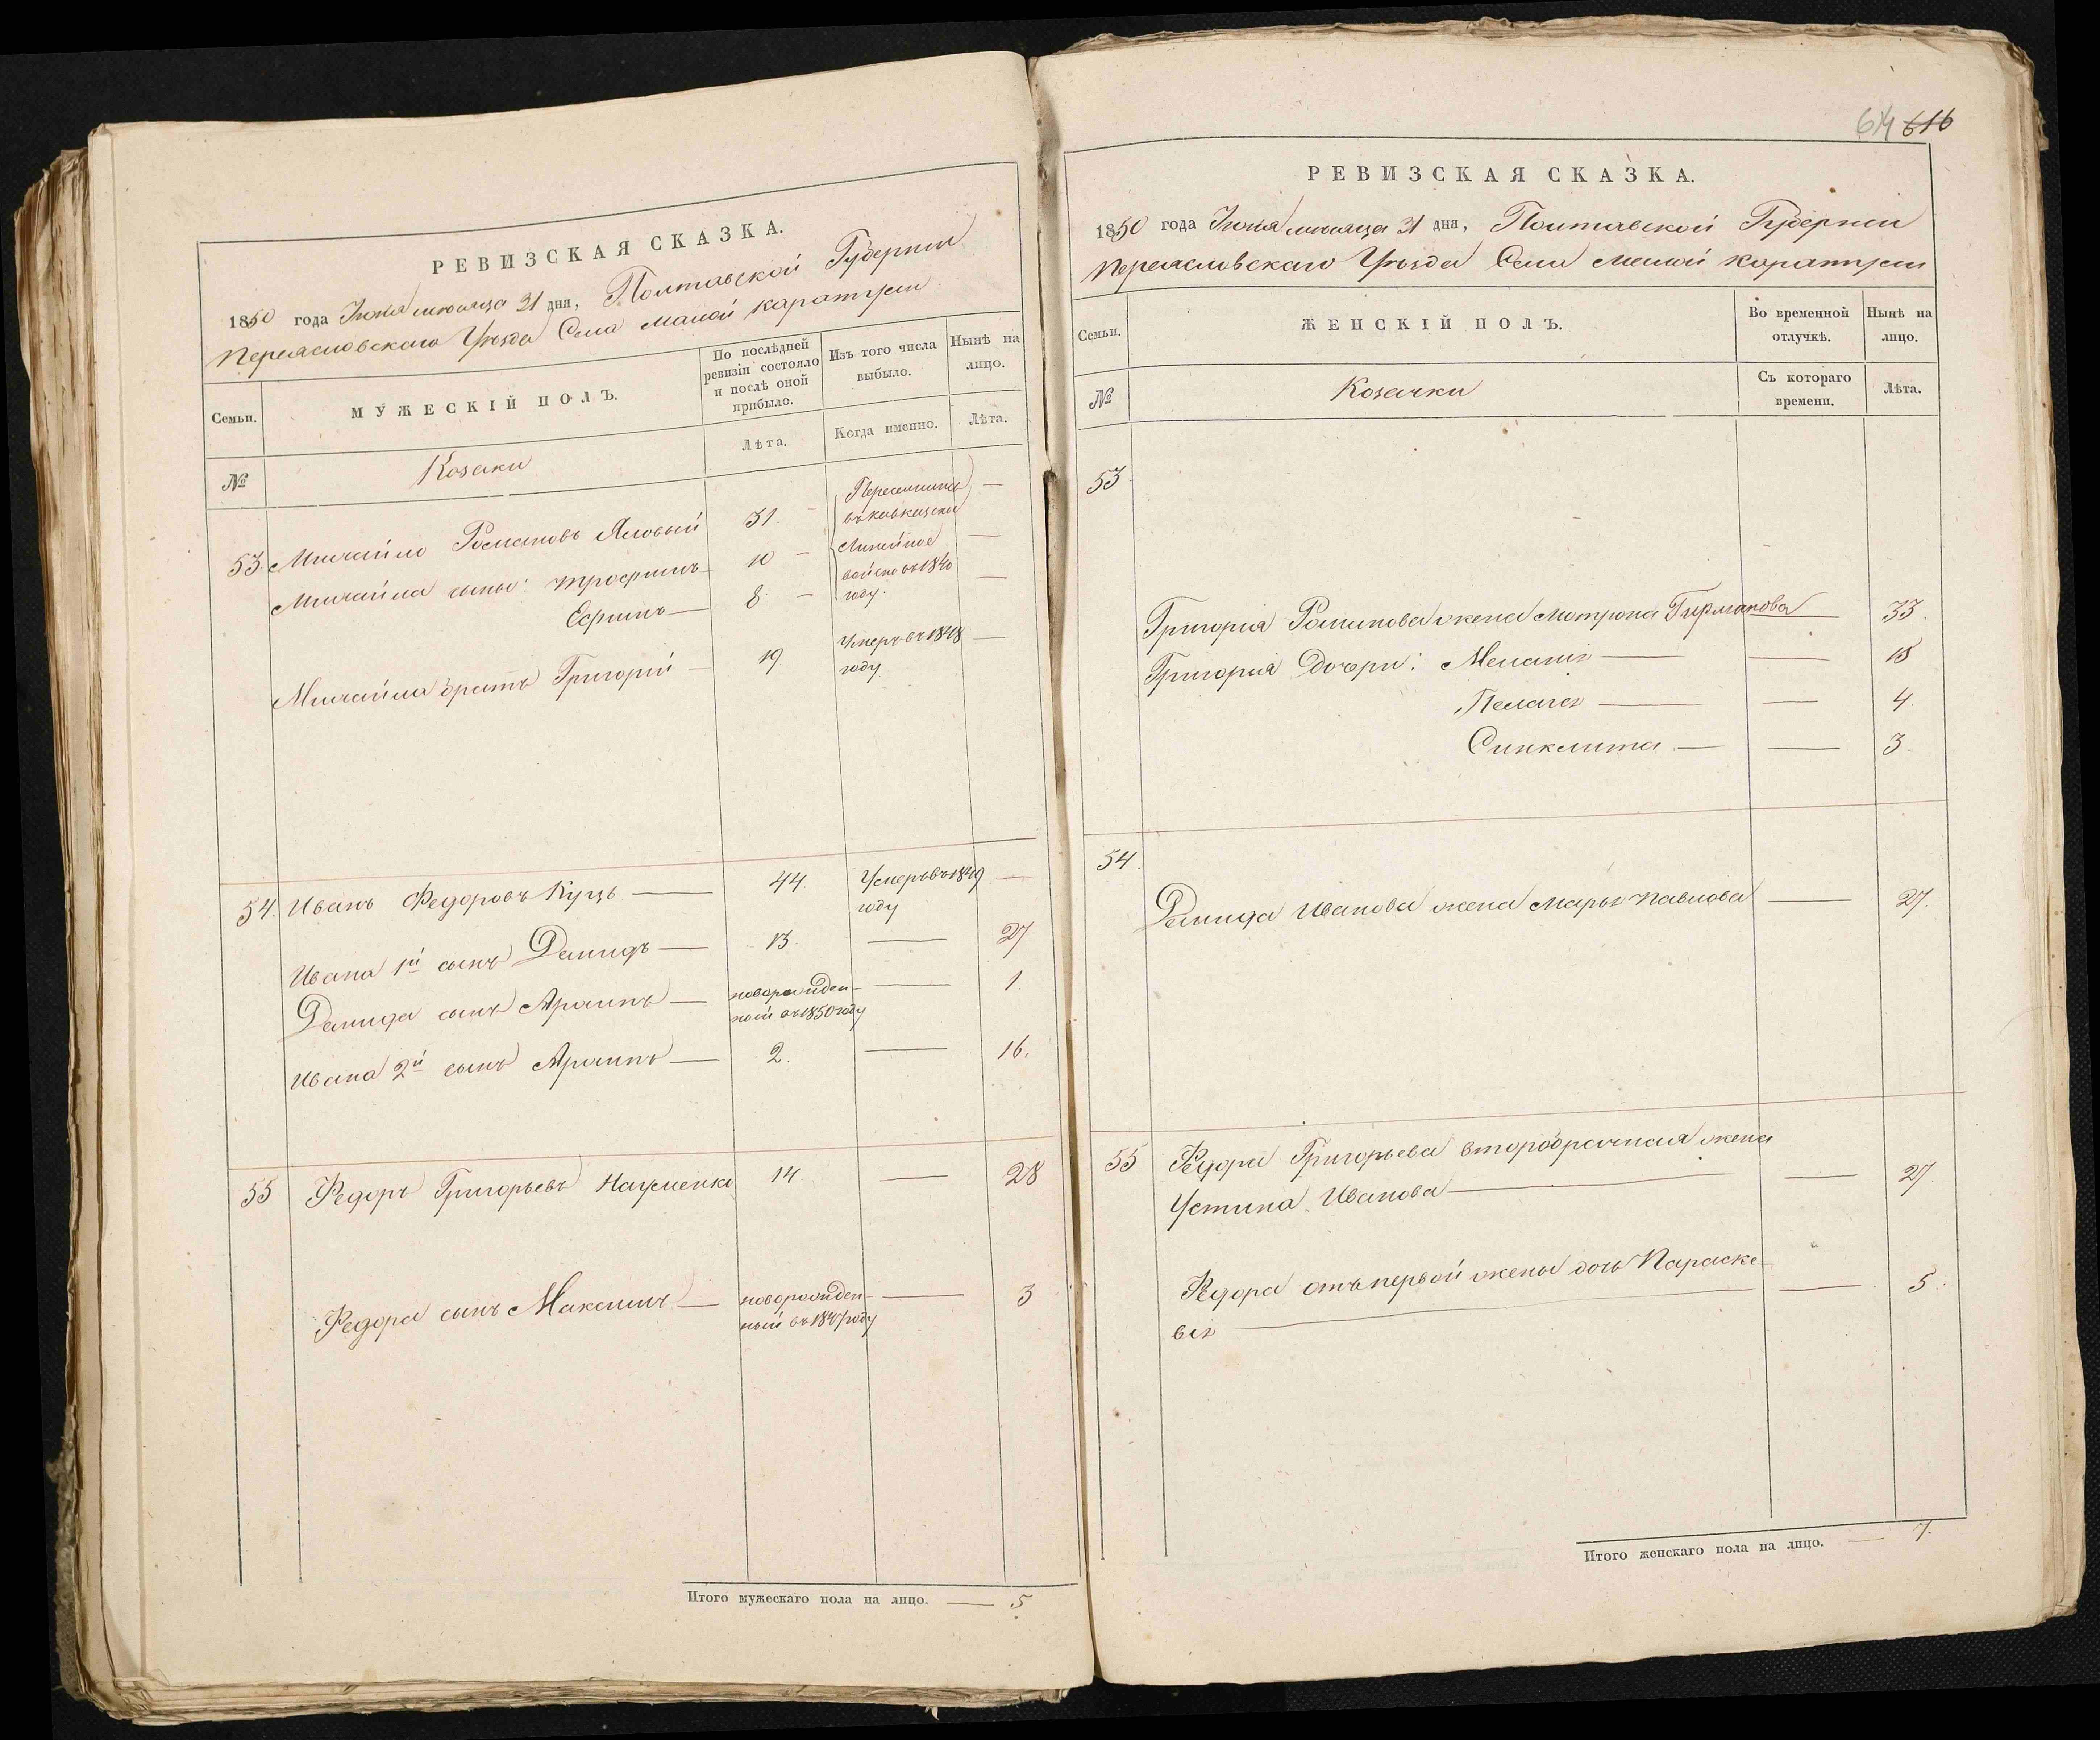 РЕВИЗСКАЯ СКАЗКА.
1850 года Июля месяца 31 дня, Полтавской Губернии
Переясловскаго Уезда Села Малой Каратули
Семьи.
МУЖЕСКІЙ ПОЛЪ.
По послѣдней ревизіи состояло и послѣ оной прибыло.
Изъ того числа выбыло.
Нынѣ на лицо.
Лѣта.
Когда именно.
Лѣта.
№
Козаки
53. Михайло Романовъ Яловый 31. — Переселился —
въ кавказское
Михайла сыны: Трофимъ — 10 — Линейное —
войско въ 1840
Ефимъ — 8. — году. —
Михайла братъ Григорій — 19. Умеръ въ 1848 —
году
54. Иванъ Федоровъ Куцъ — 44. Умеръ въ 1849 —
году
Ивана 1й сынъ Демидъ — 13. — 27
Демида сынъ Архипъ — новорожден- — 1
ный въ 1850 году
Ивана 2й сынъ Архипъ — 2. — 16.
55 Федоръ Григорьевъ Науменко 14. — 28
Федора сынъ Максимъ — новорожден- — 3
ный въ 1847 году
Итого мужескаго пола на лицо. — 5
614 616
РЕВИЗСКАЯ СКАЗКА.
1850 года Июля месяца 31 дня, Полтавской Губерніи
Переясловскаго Уезда Села Малой Каратули
Семьи.
ЖЕНСКІЙ ПОЛЪ.
Во временной отлучкѣ.
Нынѣ на лицо.
№
Козачки
Съ котораго времени.
Лѣта.
53
Григорія Романова жена Мотрона Германова — 33.
Григорія дочери: Меланія — — 18
Пелагея — — 4
Синклита — — 3.
54.
Демида Иванова жена Марья Павлова — 27.
55 Федора Григорьева второбрачная жена
Устина Иванова — — 27.
Федора отъ первой жены дочь Параске-
вія — — 5.
Итого женскаго пола на лицо. — 7.